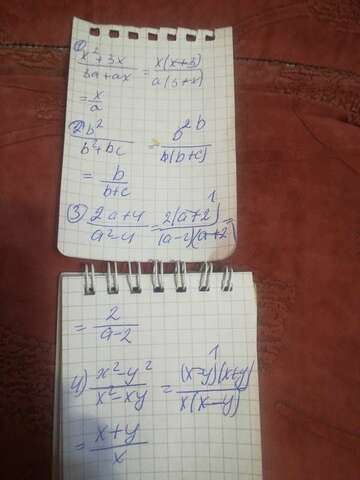 1) x²+3x / 3a+ax = x(x+3) / a(3+x)
= x / a
2) b² / b²+bc = b² b / b(b+c)
= b / b+c
3) 2a+4 / a²-4 = 2(a+2) 1 / (a-2)(a+2) =
= 2 / a-2
4) x²-y² / x²-xy = (x-y)(x+y) 1 / x(x-y)
= x+y / x